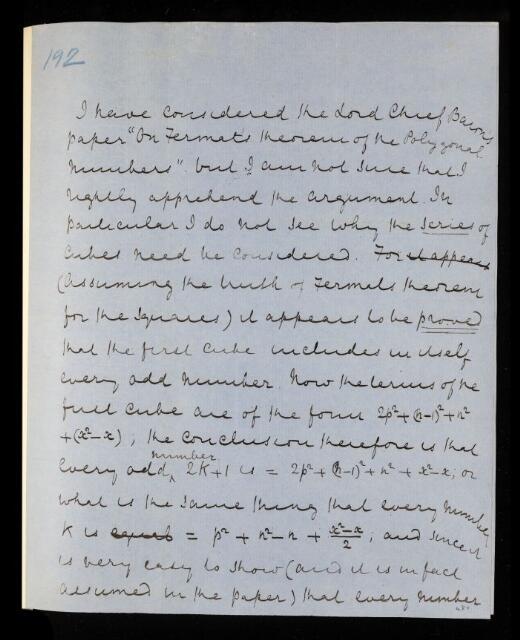 192
I have considered the Lord Chief Baron's
paper "On Fermat's theorem of the Polygonal
Numbers" but I am not sure that I
rightly apprehend the argument. In
particular I do not see why the series of
cubes need be considered. For it appears
(assuming the truth of Fermat's theorem
for the squares) it appears to be proved
that the first cube includes in itself
every odd number. Now the terms of the
first cube are of the form 2p²+(n-1)²+n²
+(x²-x); the conclusion therefore is that
every odd number 2K+1 is = 2p²+(n-1)²+n²+x²-x; or
what is the same thing that every number
K is equal = p² + n²-n + (x²-x)/2; and since it
is very easy to show (and it is in fact
assumed in the paper) that every number